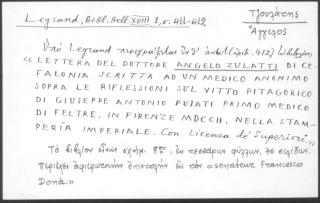 Legrand, Bibl. Hell. XVIII 1, σ. 411-412
Τζουλάτης
Ἄγγελος
Ὑπὸ Legrand περιγράφεται ὑπ' ἀριθ. 412
« LETTERA DEL DOTTORE ANGELO ZULATTI DI CE-
FALONIA SCRITTA AD UN MEDICO ANONIMO
SOPRA LE RIFLESSIONI SUL VITTO PITAGORICO
DI GIUSEPPE ANTONIO PUJATI PRIMO MEDICO
DI FELTRE, IN FIRENZE MDCCII, NELLA STAM-
PERÍA IMPERIALE. Con Licenza de' Superiori »
Τὸ βιβλίον εἶναι σχήμ. 8ον, ἐκ τεσσάρων φύλλων, σελίδων.
περιέχει ἀφιερωτικὴν ἐπιστολὴν «senatore Francesco
Donà»